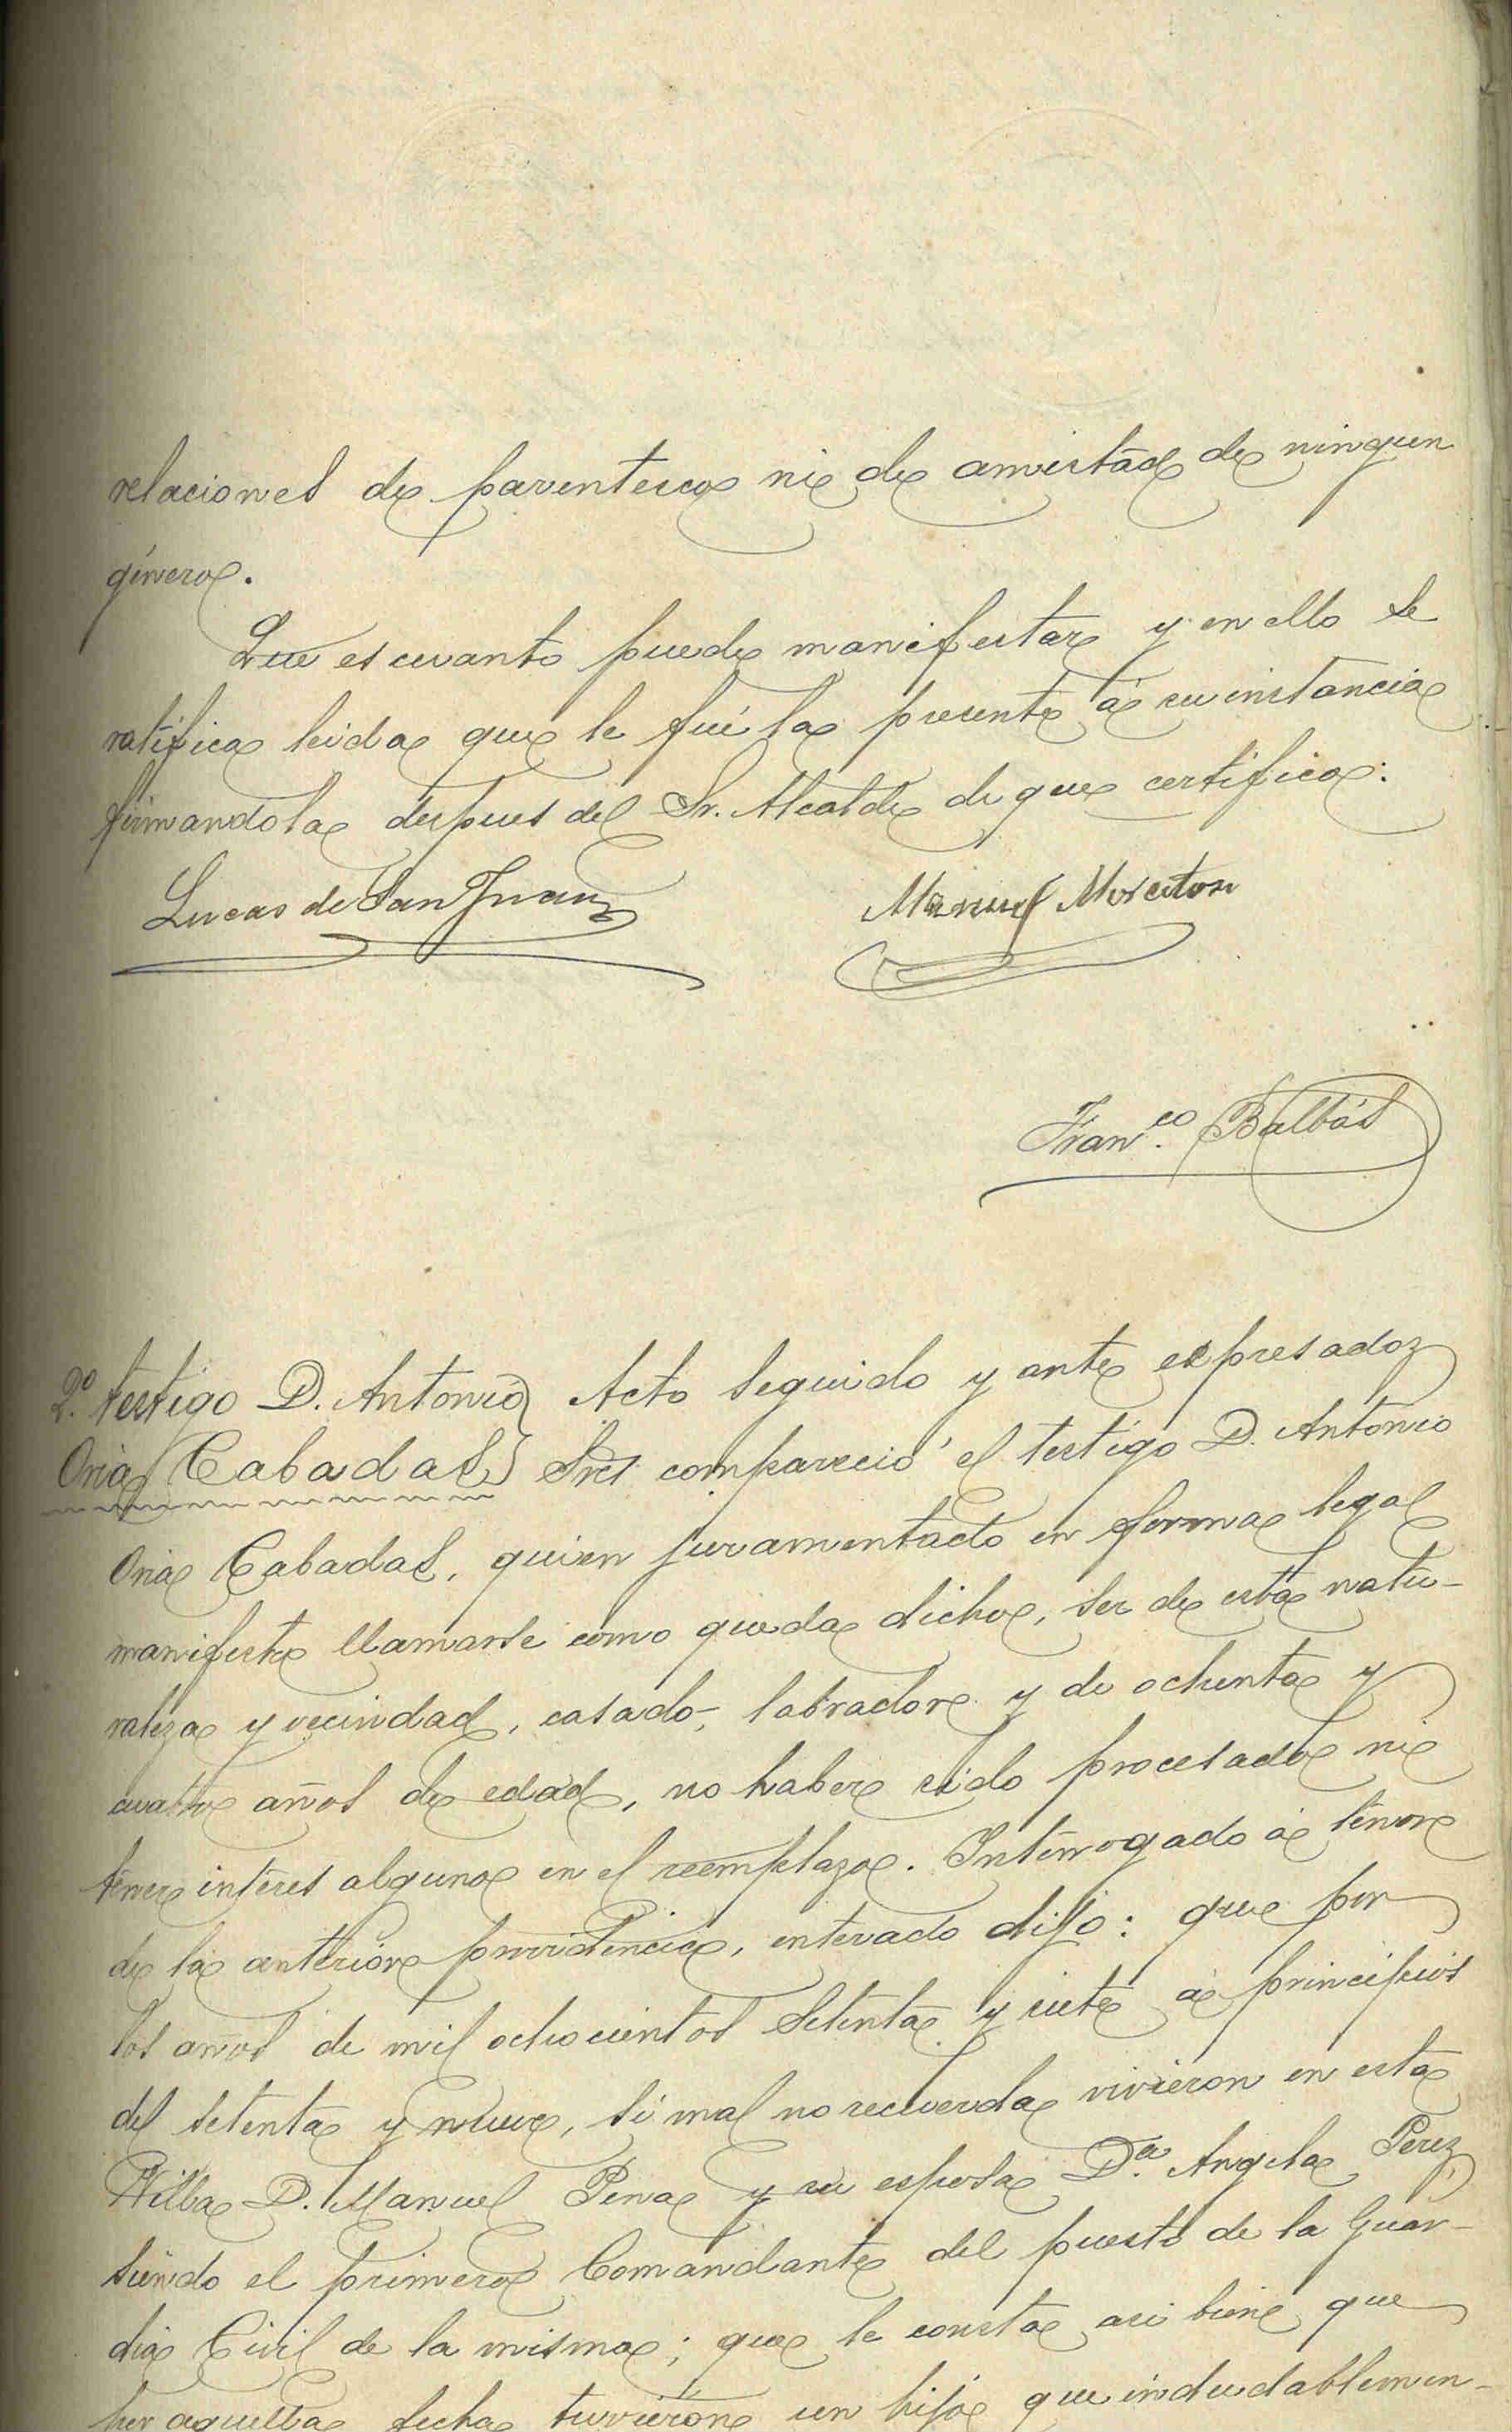 relaciones de parentesco ni de amistad de ningun
género.
Que es cuanto puede manifestar y en ello se
ratifica leida que le fué la presente á su instancia
firmandola despues del Sr. Alcalde de que certifico:
Lucas de San Juan
Manuel
Fran.co Balbás
2.º testigo D. Antonio
Oria Cabadas
Acto seguido y ante expresados
Sres compareció el testigo D. Antonio
Oria Cabadas, quien juramentado en forma legal
manifestó llamarse como queda dicho, ser de esta natu-
raleza y vecindad, casado, labrador y de ochenta y
cuatro años de edad, no haber sido procesado ni
tener interes alguno en el reemplazo. Interrogado á tenor
de la anterior providencia, enterado dijo: que por
los años de mil ochocientos setenta y siete á principios
del setenta y nueve, si mal no recuerda vivieron en esta
Villa D. Manuel Pena y su esposa D.a Angela Perez,
siendo el primero Comandante del puesto de la Guar-
dia Civil de la misma; que le consta asi bien que
por aquella fecha tuvieron un hijo que indudablemen-